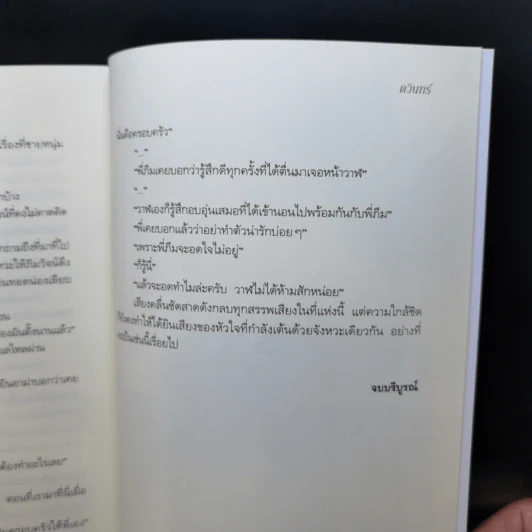 เรื่องที่ชายหนุ่ม
ถามถึงที่มาที่ไป
องมันตั้งนานแล้ว”
แลไหลผ่าน
ยินอาม่าบอกว่าเคย
ต้องทำอะไรเลย”
ตอนที่เรามาที่นี่เมื่อ
ครอบครัวให้พี่เอง”
ตวินทร์
นั่นคือครอบครัว”
“...”
“พี่ภีมเคยบอกว่ารู้สึกดีทุกครั้งที่ได้ตื่นมาเจอหน้าวาฬ”
“...”
“วาฬเองก็รู้สึกอบอุ่นเสมอที่ได้เข้านอนไปพร้อมกันกับพี่ภีม”
“พี่เคยบอกแล้วว่าอย่าทำตัวน่ารักบ่อยๆ”
“เพราะพี่ภีมจะอดใจไม่อยู่”
“ก็รู้นี่”
“แล้วจะอดทำไมล่ะครับ วาฬไม่ได้ห้ามสักหน่อย”
เสียงคลื่นซัดสาดดังกลบทุกสรรพเสียงในที่แห่งนี้ แต่ความใกล้ชิด
ก็ยังคงทำให้ได้ยินเสียงของหัวใจที่กำลังเต้นด้วยจังหวะเดียวกัน อย่างที่
จะเป็นเช่นนี้เรื่อยไป
จบบริบูรณ์